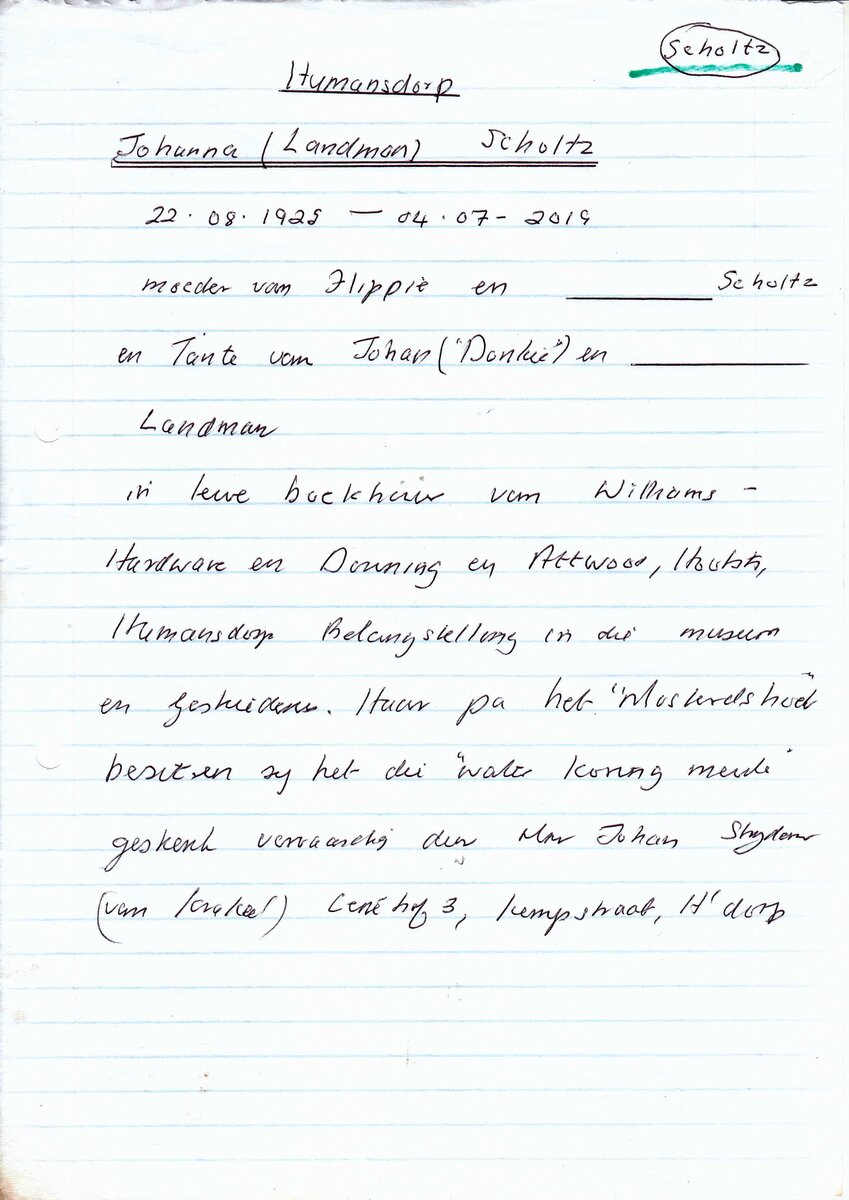 Scholtz
Humansdorp
Johanna (Landman) Scholtz
22.08.1925 — 04.07-2019
moeder van Flippie en ________ Scholtz
en Tante van Johan ("Donkie") en ________
Landman
in lewe boekhouer van Williams-
Hardware en Donning en Attwood, Hoofstr,
Humansdorp Belangstelling in die museum
en Geskiedenis. Haar pa het "Mosterdshoek"
besit en sy het die "water koning meule"
geskenk vervaardig deur Mnr Johan Strydom
(van Krakeel) Cenéhof 3, Kempstraat, H'dorp